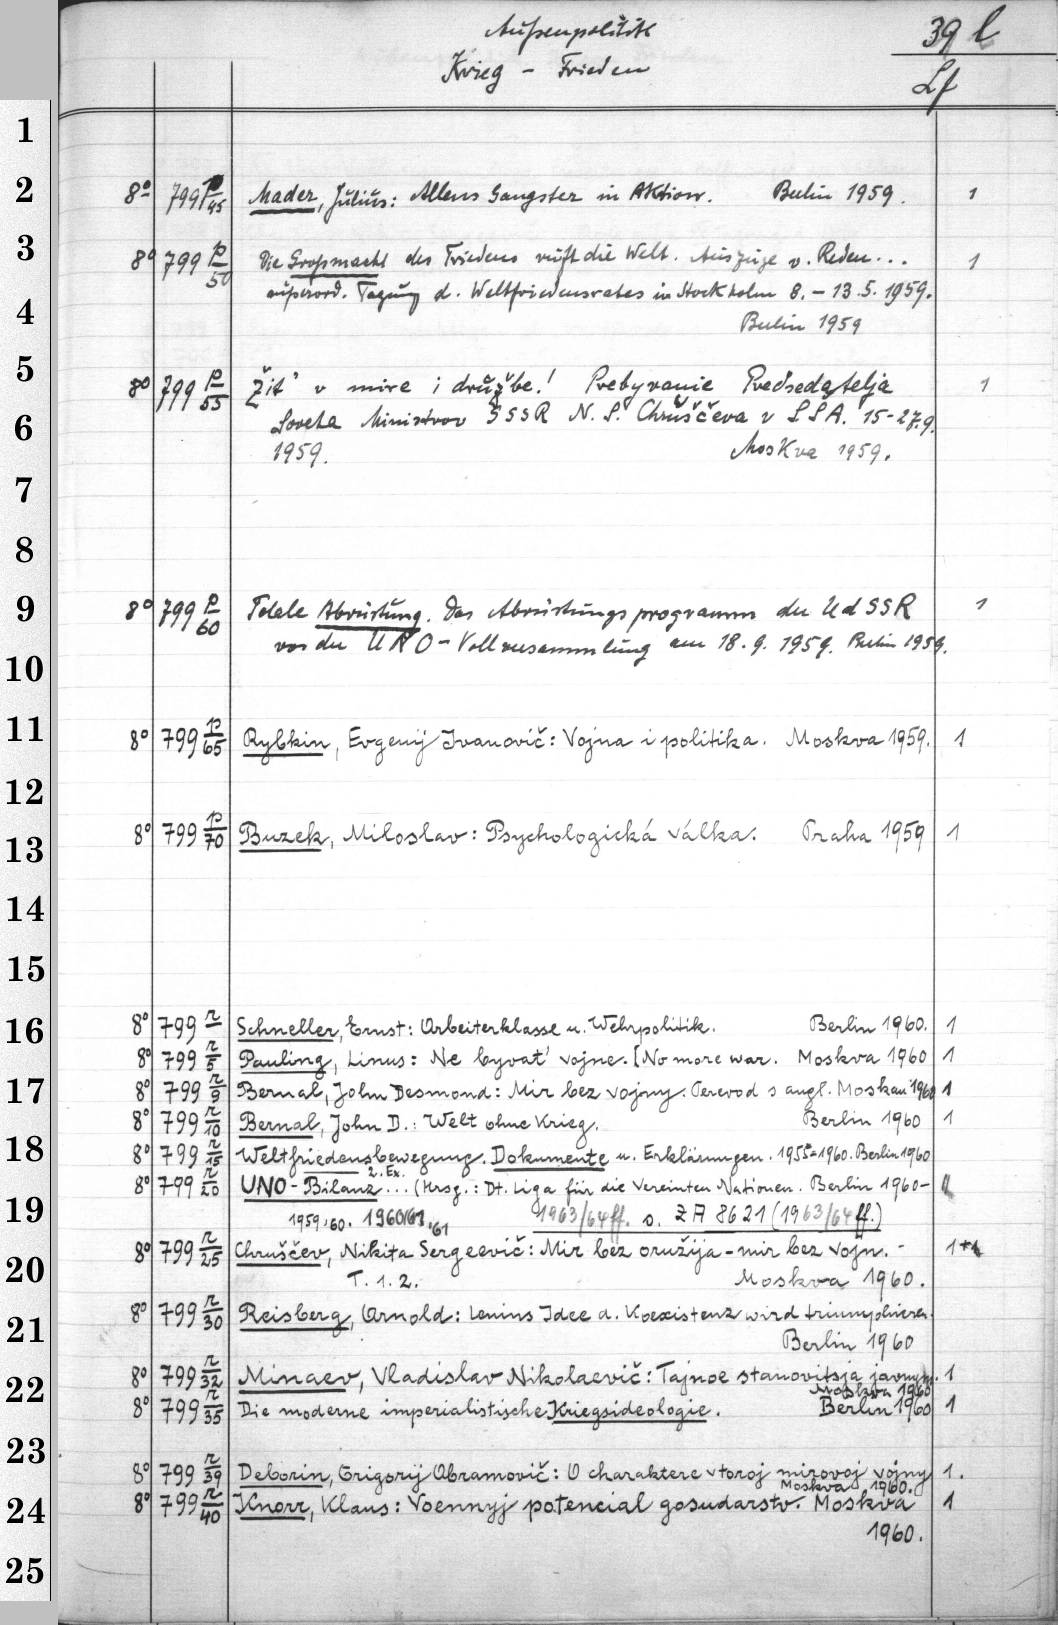 Außenpolitik
39 l
Krieg - Frieden
Lf
1
2 8° 799 p/45 Mader, Julius: Allens Gangster in Aktion. Berlin 1959. 1
3 8° 799 p/50 Die Großmacht des Friedens ruft die Welt. Auszüge v. Reden... 1
außerord. Tagung d. Weltfriedensrates in Stockholm 8.-13.5.1959.
4 Berlin 1959
5 8° 799 p/55 Žit' v mire i družbe! Prebyvanie Predsedatelja 1
6 Soveta Ministrov SSSR N. S. Chruščeva v SŠA. 15-27.9.
1959. Moskva 1959.
7
8
9 8° 799 p/60 Totale Abrüstung. Das Abrüstungsprogramm der UdSSR 1
vor der UNO-Vollversammlung am 18.9.1959. Berlin 1959.
10
11 8° 799 p/65 Rybkin, Evgenij Ivanovič: Vojna i politika. Moskva 1959. 1
12
13 8° 799 p/70 Buzek, Miloslav: Psychologická válka. Praha 1959 1
14
15
16 8° 799 r Schneller, Ernst: Arbeiterklasse u. Wehrpolitik. Berlin 1960. 1
8° 799 r/5 Pauling, Linus: Ne byvat' vojne. [No more war. Moskva 1960 1
17 8° 799 r/9 Bernal, John Desmond: Mir bez vojny. Perevod s angl. Moskau 1960 1
8° 799 r/10 Bernal, John D.: Welt ohne Krieg. Berlin 1960 1
18 8° 799 r/15 Weltfriedensbewegung. Dokumente u. Erklärungen. 1955-1960. Berlin 1960
2. Ex.
8° 799 r/20 UNO-Bilanz... (Hrsg.: Dt. Liga für die Vereinten Nationen. Berlin 1960-
19 1959/60. 1960/61. 1963/64 ff. s. ZA 8621 (1963/64 ff.)
8° 799 r/25 Chruščev, Nikita Sergeevič: Mir bez oružija - mir bez vojn. - 1+1
20 T. 1. 2. Moskva 1960.
21 8° 799 r/30 Reisberg, Arnold: Lenins Idee d. Koexistenz wird triumphieren.
Berlin 1960
22 8° 799 r/32 Minaev, Vladislav Nikolaevič: Tajnoe stanovitsja javnym. 1
Moskva 1960
8° 799 r/35 Die moderne imperialistische Kriegsideologie. Berlin 1960 1
23
8° 799 r/39 Deborin, Grigorij Abramovič: O charaktere vtoroj mirovoj vojny 1.
Moskva 1960.
24 8° 799 r/40 Knorr, Klaus: Voennyj potencial gosudarstv. Moskva 1
1960.
25